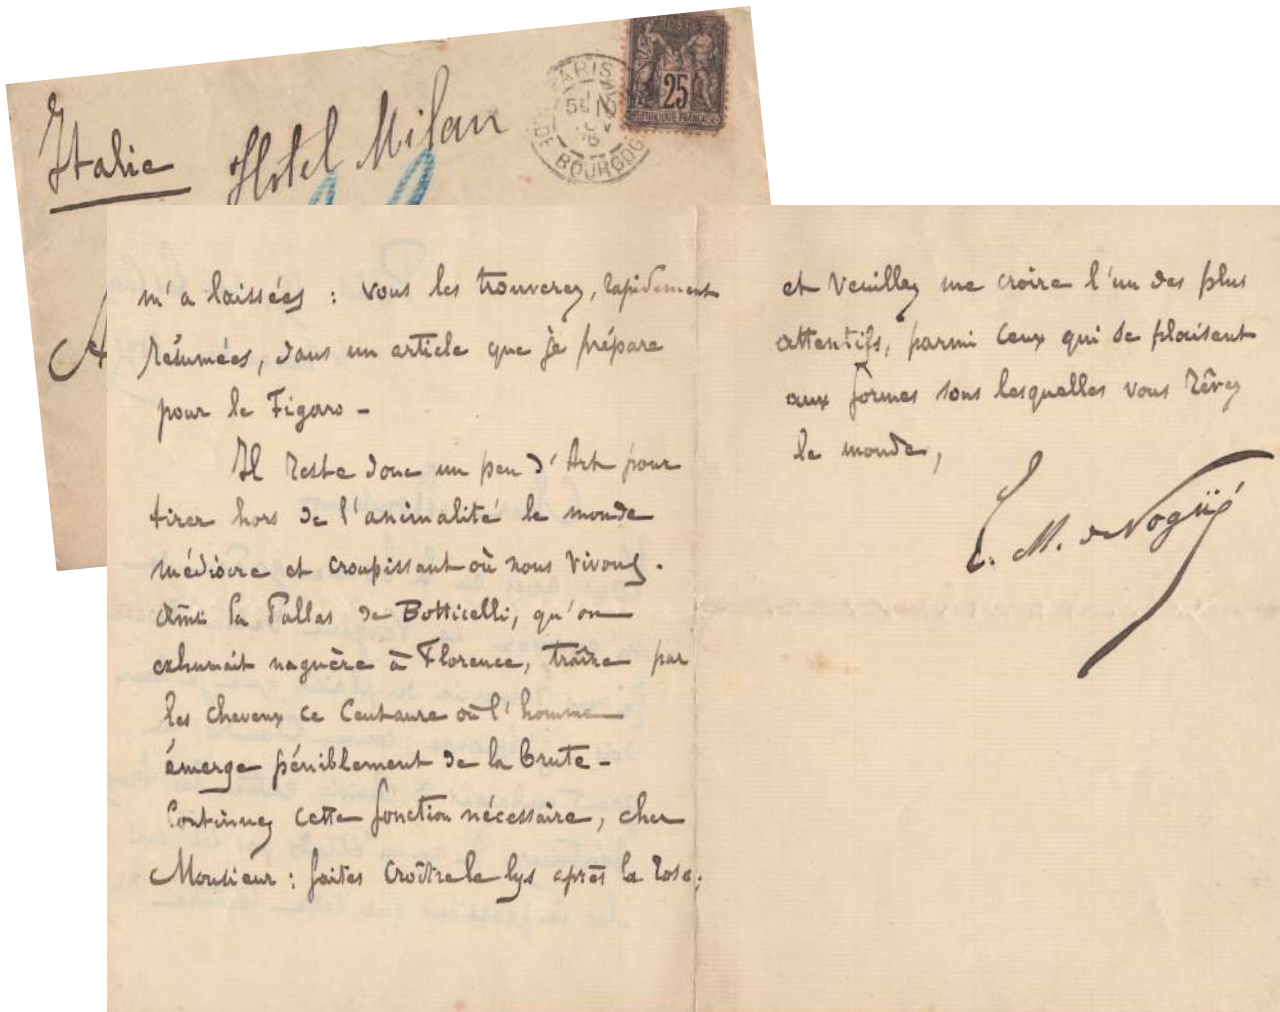 Italie
Hotel Milan
PARIS
BOURGOG
POSTES
25
REPUBLIQUE FRANCAISE
A
m'a laissées : vous les trouverez, rapidement
résumées, dans un article que je prépare
pour le Figaro -
Il reste donc un peu d'Art pour
tirer hors de l'animalité le monde
médiocre et croupissant où nous vivons.
Ainsi la Pallas de Botticelli, qu'on
exhumait naguère à Florence, traîne par
les cheveux ce Centaure où l'homme
émerge péniblement de la brute -
Continuez cette fonction nécessaire, cher
Monsieur : faites croître le lys après la rose,
et veuillez me croire l'un des plus
attentifs, parmi ceux qui se plaisent
aux formes sous lesquelles vous rêvez
le monde,
E. M. de Vogüé